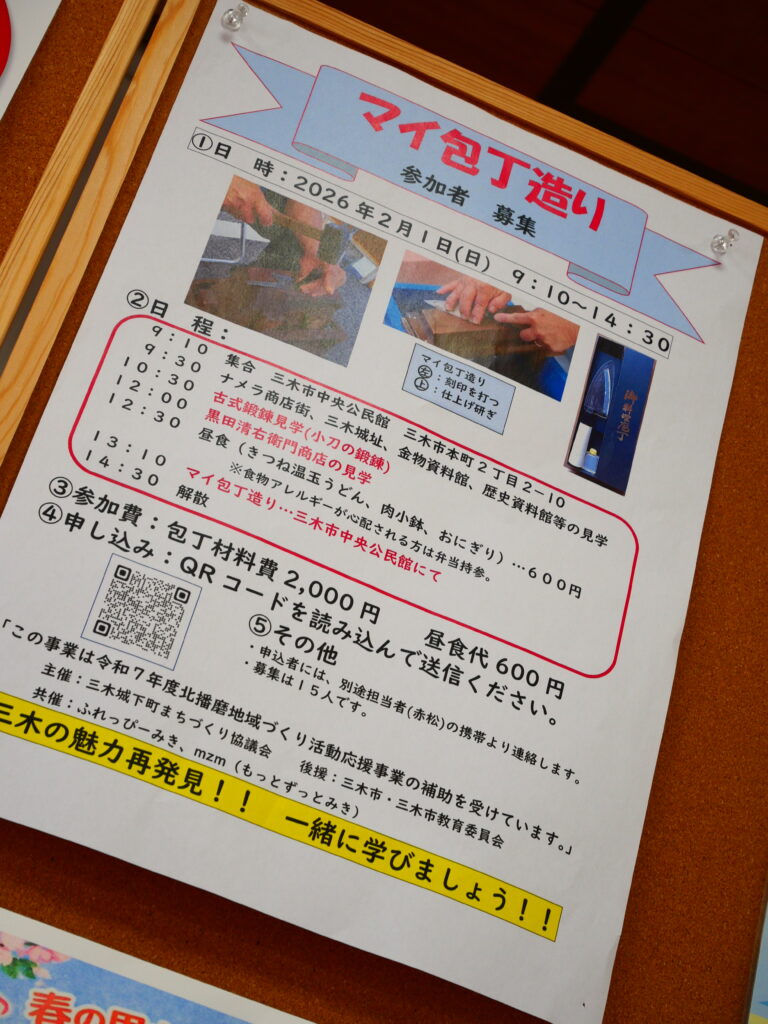 マイ包丁造り
参加者　募集
①日　時：2026年2月1日(日)　9：10～14：30
マイ包丁造り
左：刻印を打つ
上：仕上げ研ぎ
御料理庖丁
②日　程：
9：10　集合　三木市中央公民館　三木市本町2丁目2－10
9：30　ナメラ商店街、三木城址、金物資料館、歴史資料館等の見学
10：30　古式鍛錬見学(小刀の鍛錬)
12：00　黒田清右衛門商店の見学
12：30　昼食（きつね温玉うどん、肉小鉢、おにぎり）…600円
※食物アレルギーが心配される方は弁当持参。
13：10　マイ包丁造り…三木市中央公民館にて
14：30　解散
③参加費：包丁材料費2,000円　昼食代600円
④申し込み：QRコードを読み込んで送信ください。
⑤その他
・申込者には、別途担当者(赤松)の携帯より連絡します。
・募集は15人です。
「この事業は令和7年度北播磨地域づくり活動応援事業の補助を受けています。」
主催：三木城下町まちづくり協議会　後援：三木市・三木市教育委員会
共催：ふれっぴーみき、mzm（もっとずっとみき）
三木の魅力再発見！！　一緒に学びましょう！！
春の